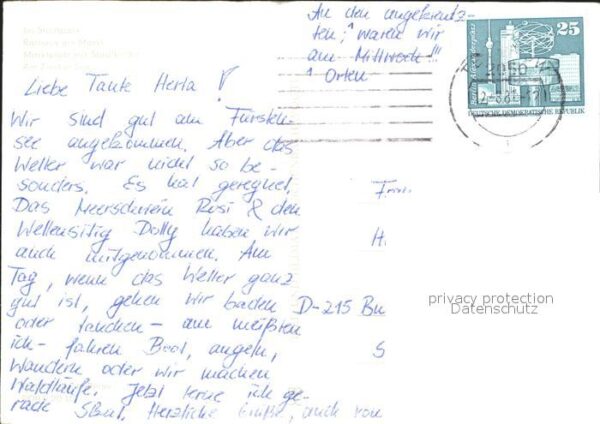 An den angekreuz-
ten, waren wir
am Mittwoch!!!
Orten
25
Berlin Alexanderplatz
DEUTSCHE DEMOKRATISCHE REPUBLIK
Im Stadtpark
Rathaus am Markt
Liebe Tante Herta!
Wir sind gut am Fürsten-
see angekommen. Aber das
Wetter war nicht so be-
sonders. Es hat geregnet.
Das Meerschwein Rosi & den
Wellensittig Dolly haben wir
auch mitgenommen. Am
Tag, wenn das Wetter ganz
gut ist, gehen wir baden
oder tauchen - am meißten
ich - fahren Boot, angeln,
wandern oder wir machen
Waldläufe. Jetzt lerne ich ge-
rade Skat. Herzliche Grüße, auch von
H.
D-215 Bu
S
privacy protection
Datenschutz